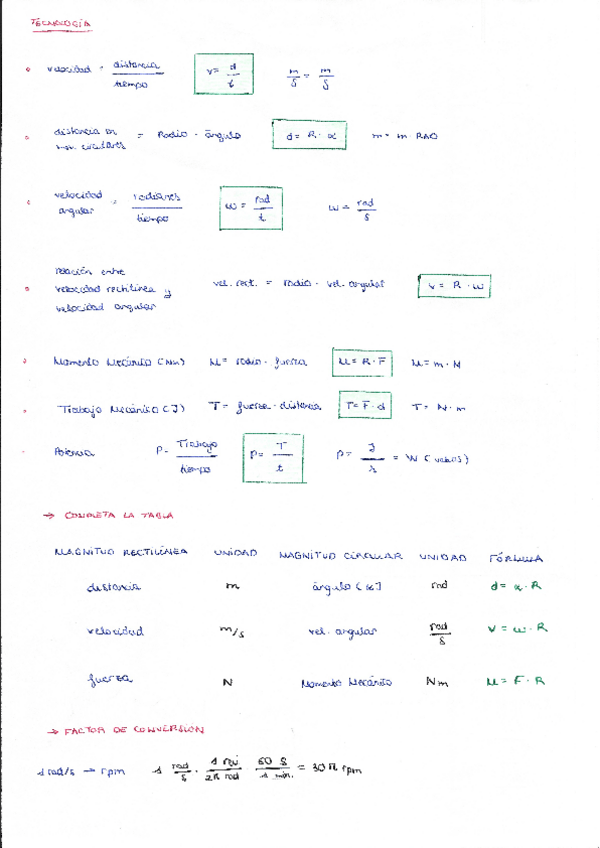 TECNOLOGÍA
velocidad = distancia / tiempo   v = d / t   m / s = m / s
distancia en mov. circulares = Radio · ángulo   d = R · α   m = m · RAD
velocidad angular = radianes / tiempo   ω = rad / t   ω = rad / s
relación entre velocidad rectilínea y velocidad angular   vel. rect. = radio · vel. angular   v = R · ω
Momento Mecánico (Nm)   M = radio · fuerza   M = R · F   M = m · N
Trabajo Mecánico (J)   T = fuerza · distancia   T = F · d   T = N · m
Potencia   P = Trabajo / tiempo   P = T / t   P = J / s = W (vatios)
→ COMPLETA LA TABLA
MAGNITUD RECTILÍNEA   UNIDAD   MAGNITUD CIRCULAR   UNIDAD   FÓRMULA
distancia   m   ángulo (α)   rad   d = α · R
velocidad   m/s   vel. angular   rad / s   V = ω · R
fuerza   N   Momento Mecánico   Nm   M = F · R
→ FACTOR DE CONVERSIÓN
1 rad/s → rpm   1 rad / s · 1 rev / 2π rad · 60 s / 1 min. = 30 π rpm